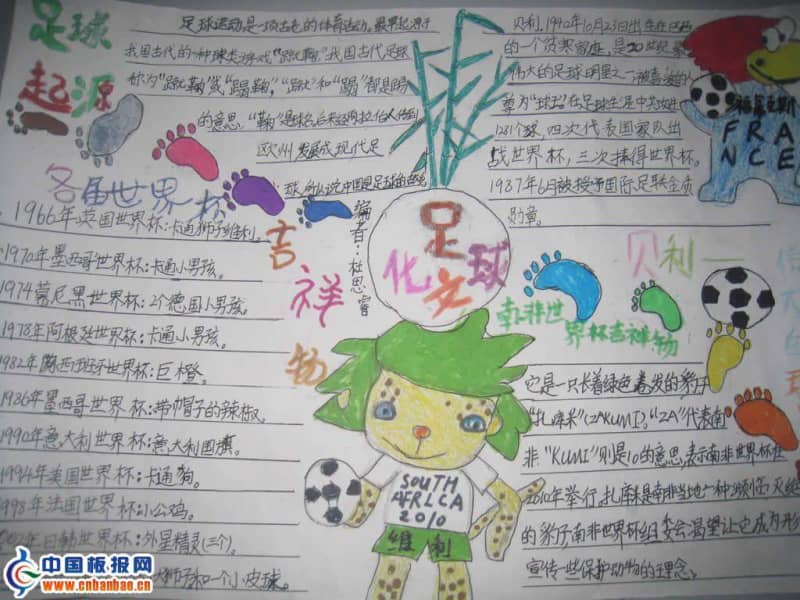 足球
起源
足球运动是一项古老的体育运动。最早起源于
我国古代的一种球类游戏"蹴鞠"我国古代足球
称为"蹴鞠"或"蹋鞠","蹴"和"蹋"都是踢
的意思,"鞠"是球名后来经阿拉伯人传到
欧洲发展成现代足
球,所以说中国是足球的故乡
各届世界杯
吉祥物
1966年英国世界杯:卡通狮子维利。
1970年墨西哥世界杯:卡通小男孩。
1974慕尼黑世界杯:2个德国小男孩。
1978年阿根廷世界杯:卡通小男孩。
1982年西班牙世界杯:巨橙。
1986年墨西哥世界杯:带帽子的辣椒。
1990年意大利世界杯:意大利国旗。
1994年美国世界杯:卡通狗。
1998年法国世界杯:小公鸡。
日韩世界杯:外星精灵(三个)。
狮子和一个小皮球。
编者:杜思睿
足球
文化
贝利,1940年10月23日出生在巴西
的一个贫寒家庭,是20世纪最
伟大的足球明星之一被喜爱的人
尊为"球王"在足球生涯中共踢进
1281个球,四次代表国家队出
战世界杯,三次捧得世界杯。
1987年6月被授予国际足联金质
勋章。
FRANCE
贝利一
伟大的球
南非世
界杯吉祥物
它是一只长着绿色卷发的豹子
"扎库米"(ZAKUMI)。"ZA"代表南
非"KUMI"则是10的意思,表示南非世界杯在
2010年举行。扎库米是南非当地一种濒临灭绝
的豹子南非世界杯组委会渴望让它成为形
宣传一些保护动物的理念。
SOUTH
AFRLCA
2010
维利
中国板报网
www.cnbanbao.cn